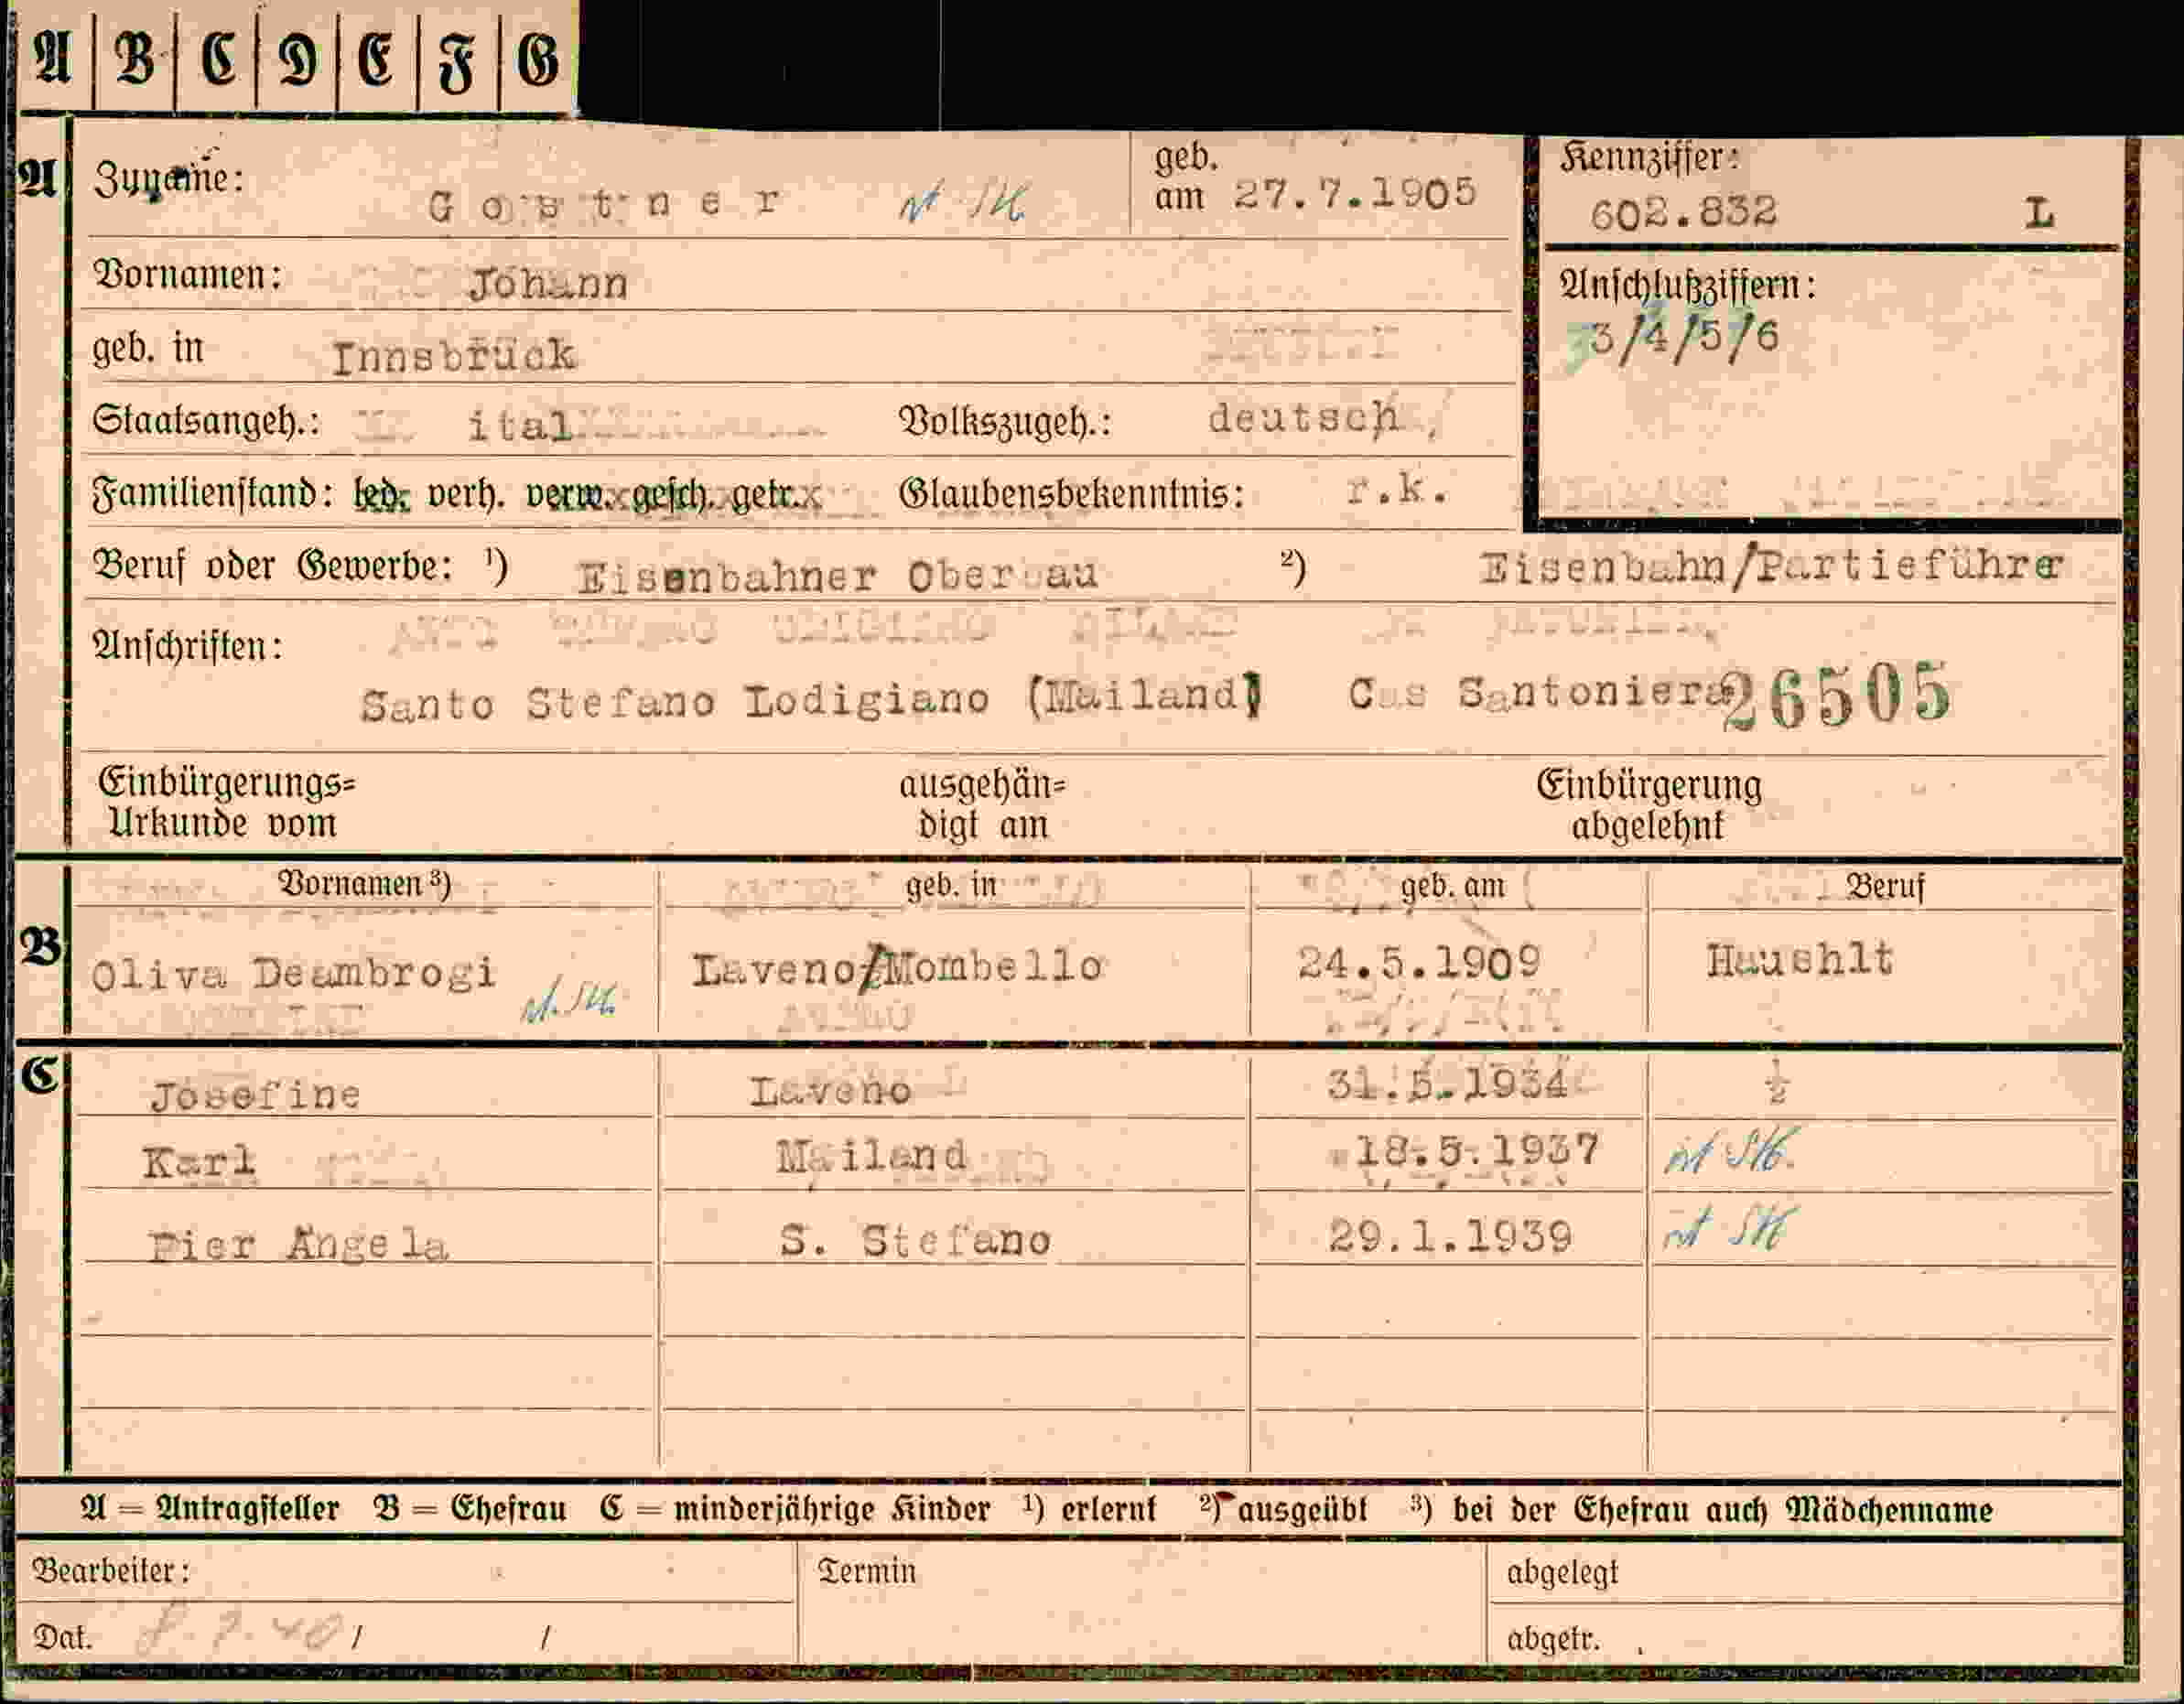 A B C D E F G
A
Zuname: Gostner
geb. am 27.7.1905
Kennziffer: 602.832 L
Vornamen: Johann
Anschlußziffern: 3/4/5/6
geb. in Innsbruck
Staatsangeh.: ital
Volkszugeh.: deutsch
Familienstand: led. verh. verw. gesch. getr.
Glaubensbekenntnis: r.k.
Beruf oder Gewerbe: ¹) Eisenbahner Oberbau ²) Eisenbahn/Partieführer
Anschriften:
Santo Stefano Lodigiano (Mailand) Cas Santoniera 26505
Einbürgerungs= ausgehän= Einbürgerung
Urkunde vom digt am abgelehnt
Vornamen ³) geb. in geb. am Beruf
B
Oliva Deambrogi Laveno/Mombello 24.5.1909 Haushlt
C
Josefine Laveno 31.5.1934 ½
Karl Mailand 18.5.1937
Pier Angela S. Stefano 29.1.1939
A = Antragsteller B = Ehefrau C = minderjährige Kinder ¹) erlernt ²) ausgeübt ³) bei der Ehefrau auch Mädchenname
Bearbeiter: Termin abgelegt
Dat. 8.7.40 / / abgetr.